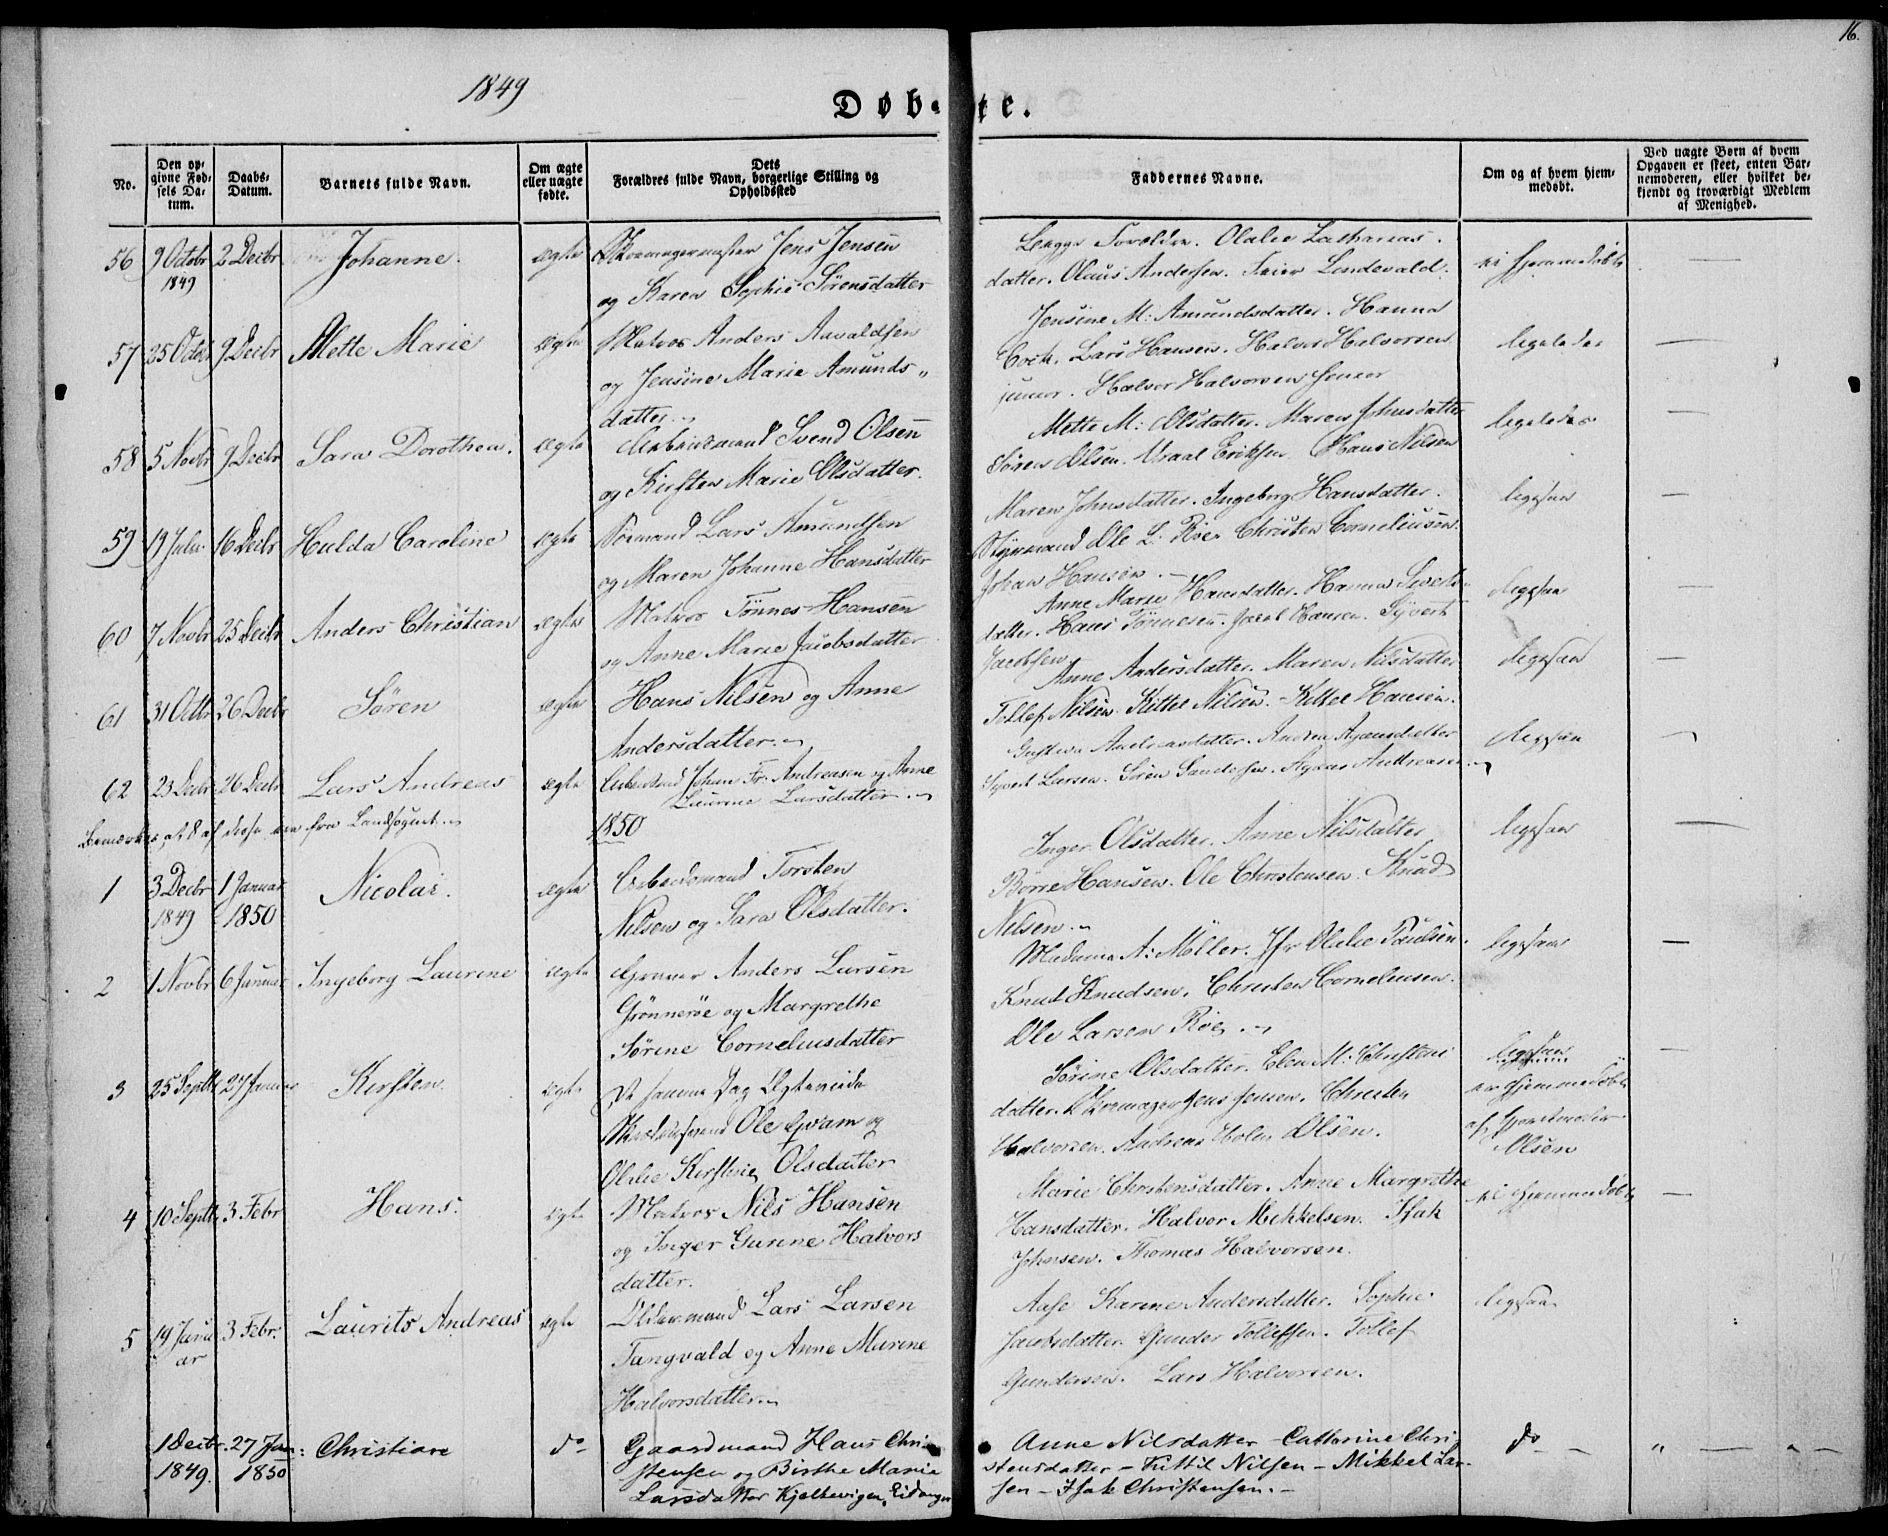 16.
1849
Døb-te.
No.
Den op-
givne Fød-
sels Da-
tum.
Daabs-
Datum.
Barnets fulde Navn.
Om ægte
eller uægte
fødte.
Dets
Forældres fulde Navn, borgerlige Stilling og
Opholdssted
Faddernes Navne.
Om og af hvem hjem-
medøbt.
Ved uægte Børn af hvem
Opgaven er skeet, enten Bar-
nemoderen, eller hvilket be-
kjendt og troværdigt Medlem
af Menighed.
56 9 Octobr 2 Decbr Johanne. ægte Jens Jensen
1849
og Karen Sophie Sørensdatter
Olalie Zacharias
datter. Olaus Andersen. Lindevald.
ei hjemmedøbt
57 25 Octob 9 Decbr Mette Marie ægte Matros Anders Aavaldsen
og Jensine Marie Amunds„
datter
Jensine M: Amundsdatter. Hanna
Coch. Lars Hansen. Halvor Halvorsen
junior. Halvor Halvorsen senior
ligeledes
58 5 Novbr 9 Decbr Sara Dorothea. ægte Arbeidsmand Svend Olsen
og Kirsten Marie Olsdatter.
Mette M: Olsdatter. Maren Johnsdatter
Søren Olsen. Vraal Eriksen. Hans Nilsen
ligeledes
59 19 Juli 16 Decbr Hulda Caroline ægte Sømand Lars Amundsen
og Maren Johanne Hansdatter
Maren Johnsdatter. Ingeborg Hansdatter.
Styrmand Ole L. Roe. Christen Corneliusen.
Johan Hansen.
ligesaa
60 7 Novbr 25 Decbr Anders Christian ægte Matros Tønnes Hansen
og Anne Marie Jacobsdatter
Anne Marie Hansdatter. Hanna Siverts
datter. Hans Tønnesen. Jacob Hansen. Syvert
Jacobsen
ligesaa
61 31 Octbr 26 Decbr Søren ægte Hans Nilsen og Anne
Andersdatter.
Anne Andersdatter. Maren Nilsdatter
Tollef Nilsen. Kittel Nilsen. Kittel Hansen.
ligesaa
62 23 Decbr 26 Decbr Lars Andreas ægte Arbmand Johan Fr. Andreasen og Anne
Laurine Larsdatter.
Andreasdatter. Andrea
Syvert Larsen. Søren Andreasen.
ligesaa
Bemærkes, at 8 af disse ere fra Landsognet.
1850
1 3 Decbr 1 Januar Nicolai. ægte Arbeidsmand Torsten
1849 1850
Nilsen og Sara Olsdatter.
Inger Olsdatter. Anne Nilsdatter
Børre Hansen. Ole Christensen. Knud
Nilsen.
ligesaa
2 1 Novbr 6 Januar Ingeborg Laurine ægte Anders Larsen
Grønnerøe og Margrethe
Sørine Corneliusdatter
Madame A: Møller. Jfr Olalie Paulsen.
Knud Knudsen. Christen Corneliusen.
Ole Larsen Roe.
ligesaa
3 25 Septbr 27 Januar Kirsten ægte De samme Dag Ægteviede
Ole Qvam og
Olalie Kirstine Olsdatter
Sørine Olsdatter. Elen M: Christens
datter. Skomager Jens Jensen. Christen
Halvorsen. Andreas Holm Olsen.
ligesaa
er hjemmedøbt
af
Olsen
4 10 Septbr 3 Febr Hans. ægte Matros Nils Hansen
og Inger Gurine Halvors
datter.
Marie Christensdatter. Anne Margrethe
Hansdatter. Halvor Mikkelsen. Isak
Johnsen. Thomas Halvorsen.
ei hjemmedøbt
5 19 Janu 3 Febr. Laurits Andreas ægte Oldermand Lars Larsen
ar
Tangvald og Anne Marine
Halvorsdatter.
Aase Karine Andersdatter. Sophie
Jacobsdatter. Gunder Tollefsen. Tollef
Gundersen. Lars Halvorsen.
ligesaa
1 Decbr. 27 Jan: Christiane do Gaardmand Hans Chri
1849. 1850
stensen og Birthe Marie
Larsdatter Kjelkevigen, Eidanger
Anne Nilsdatter – Cathrine Chri
stensdatter – Kittil Nilsen – Mikkel Lar-
sen – Isak Christensen. –
do – „ – – –